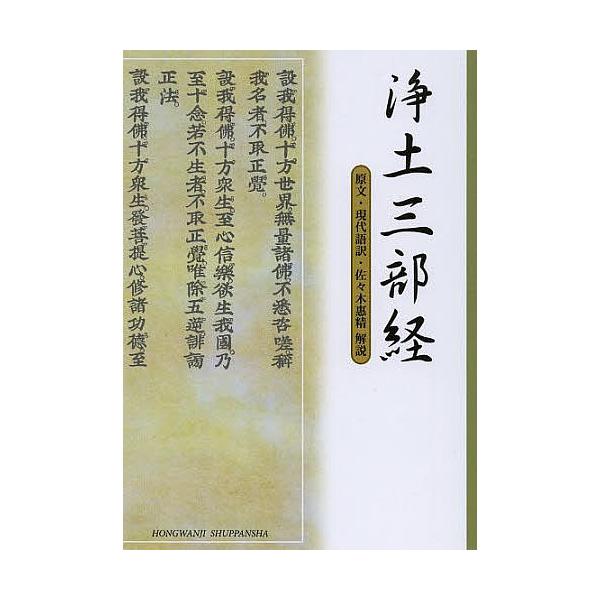 浄土三部経
原文・現代語訳・佐々木惠精 解説
設我得佛。十方世界無量諸佛不悉咨嗟稱
我名者不取正覺。
設我得佛。十方衆生至心信樂欲生我國乃
至十念若不生者不取正覺。唯除五逆誹謗
正法。
設我得佛十方衆生。發菩提心。修諸功德至
HONGWANJI SHUPPANSHA